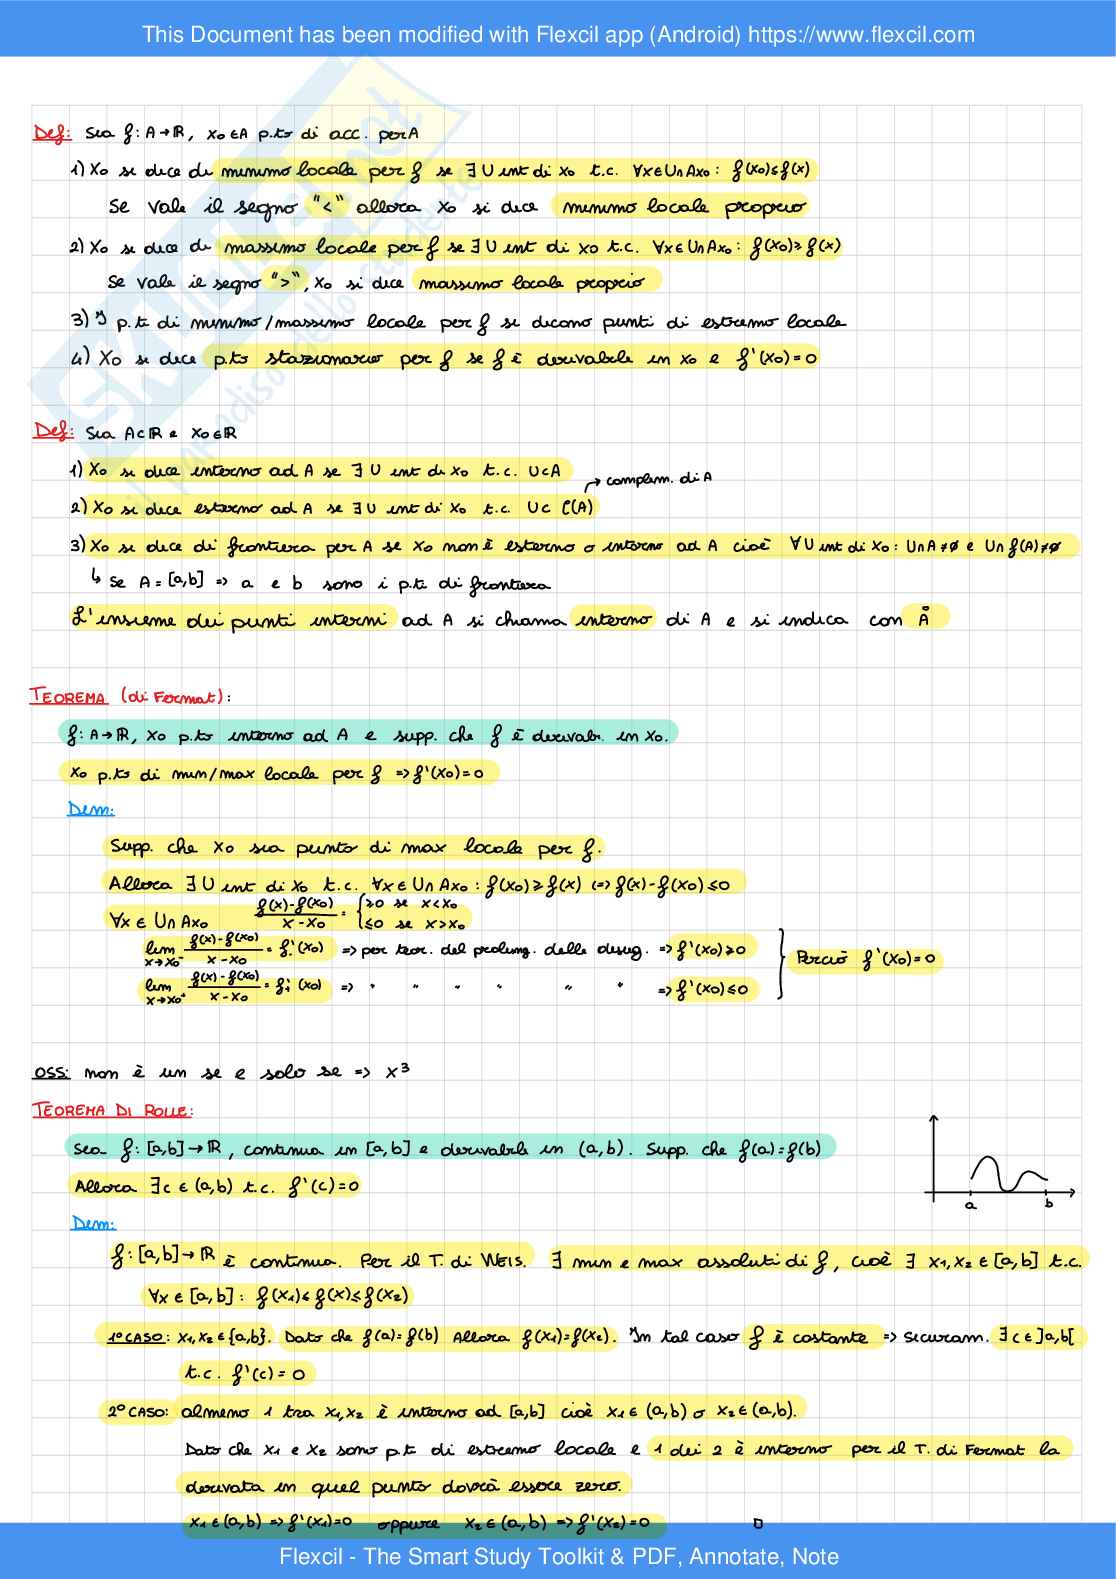 This Document has been modified with Flexcil app (Android) https://www.flexcil.com
Def: Sia f: A→ℝ, x₀∈A p.to di acc. per A
1) x₀ si dice di minimo locale per f se ∃ U int di x₀ t.c. ∀x∈U∩A\x₀: f(x₀)≤f(x)
Se vale il segno "<" allora x₀ si dice minimo locale proprio
2) x₀ si dice di massimo locale per f se ∃ U int di x₀ t.c. ∀x∈U∩A\x₀: f(x₀)≥f(x)
Se vale il segno ">", x₀ si dice massimo locale proprio
3) I p.ti di minimo/massimo locale per f si dicono punti di estremo locale
4) x₀ si dice p.to stazionario per f se f è derivabile in x₀ e f'(x₀)=0
Def: Sia A⊂ℝ e x₀∈ℝ
1) x₀ si dice interno ad A se ∃ U int di x₀ t.c. U⊂A
→ complem. di A
2) x₀ si dice esterno ad A se ∃ U int di x₀ t.c. U⊂ C(A)
3) x₀ si dice di frontiera per A se x₀ non è esterno o interno ad A cioè ∀U int di x₀: U∩A≠ø e U∩f(A)≠ø
↳ Se A=[a,b] => a e b sono i p.ti di frontiera
L'insieme dei punti interni ad A si chiama interno di A e si indica con Å
TEOREMA (di Fermat):
f: A→ℝ, x₀ p.to interno ad A e supp. che f è derivab. in x₀.
x₀ p.to di min/max locale per f => f'(x₀)=0
Dem:
Supp. che x₀ sia punto di max locale per f.
Allora ∃ U int di x₀ t.c. ∀x∈U∩A\x₀: f(x₀)≥f(x) <=> f(x)-f(x₀)≤0
∀x∈U∩A\x₀ (f(x)-f(x₀))/(x-x₀) = { ≥0 se x<x₀
≤0 se x>x₀
lim x→x₀⁻ (f(x)-f(x₀))/(x-x₀) = f'₋(x₀) => per teor. del prolung. delle disug. => f'(x₀)≥0
} Perciò f'(x₀)=0
lim x→x₀⁺ (f(x)-f(x₀))/(x-x₀) = f'₊(x₀) => " " " " " " => f'(x₀)≤0
OSS: non è un se e solo se => x³
TEOREMA DI ROLLE:
Sia f: [a,b]→ℝ, continua in [a,b] e derivabile in (a,b). Supp. che f(a)=f(b)
Allora ∃c∈(a,b) t.c. f'(c)=0
a b
Dem:
f: [a,b]→ℝ è continua. Per il T. di WEIS. ∃ min e max assoluti di f, cioè ∃ x₁,x₂∈[a,b] t.c.
∀x∈[a,b]: f(x₁)≤f(x)≤f(x₂)
1° CASO: x₁,x₂∈{a,b}. Dato che f(a)=f(b) Allora f(x₁)=f(x₂). In tal caso f è costante => sicuram. ∃c∈]a,b[
t.c. f'(c)=0
2° CASO: almeno 1 tra x₁,x₂ è interno ad [a,b] cioè x₁∈(a,b) o x₂∈(a,b).
Dato che x₁ e x₂ sono p.ti di estremo locale e 1 dei 2 è interno per il T. di Fermat la
derivata in quel punto dovrà essere zero.
x₁∈(a,b) => f'(x₁)=0 oppure x₂∈(a,b) => f'(x₂)=0 □
Flexcil - The Smart Study Toolkit & PDF, Annotate, Note